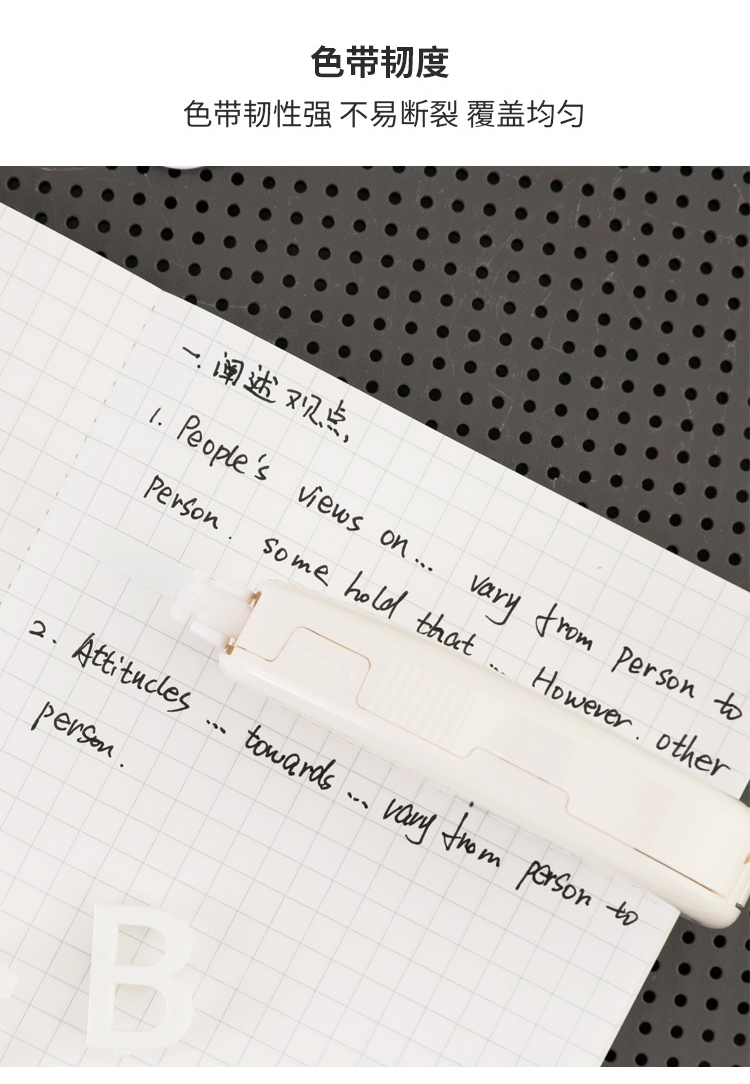 色带韧度
色带韧性强 不易断裂 覆盖均匀
一. 阐述观点.
1. People's views on... vary from person to
person. some hold that... However. other
2. Attitudes ... towards ... vary from person to
person.
B